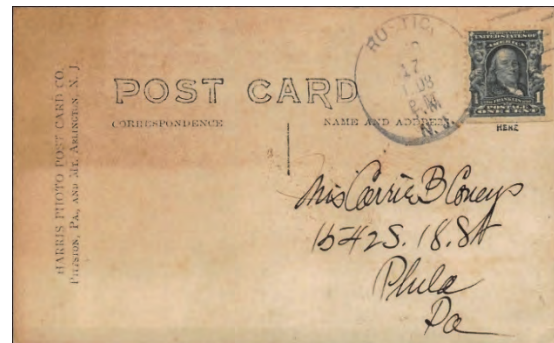 HARRIS PHOTO POST CARD CO.
PITTSTON, PA., AND MT. ARLINGTON, N. J.
POST CARD
CORRESPONDENCE
NAME AND ADDRESS
RUSTIC,
17
1908
P M
N.J.
UNITED STATES OF
AMERICA
1
POSTAGE
ONE CENT
HERE
Mis Carrie B
1542 S. 18. St
Phila
Pa